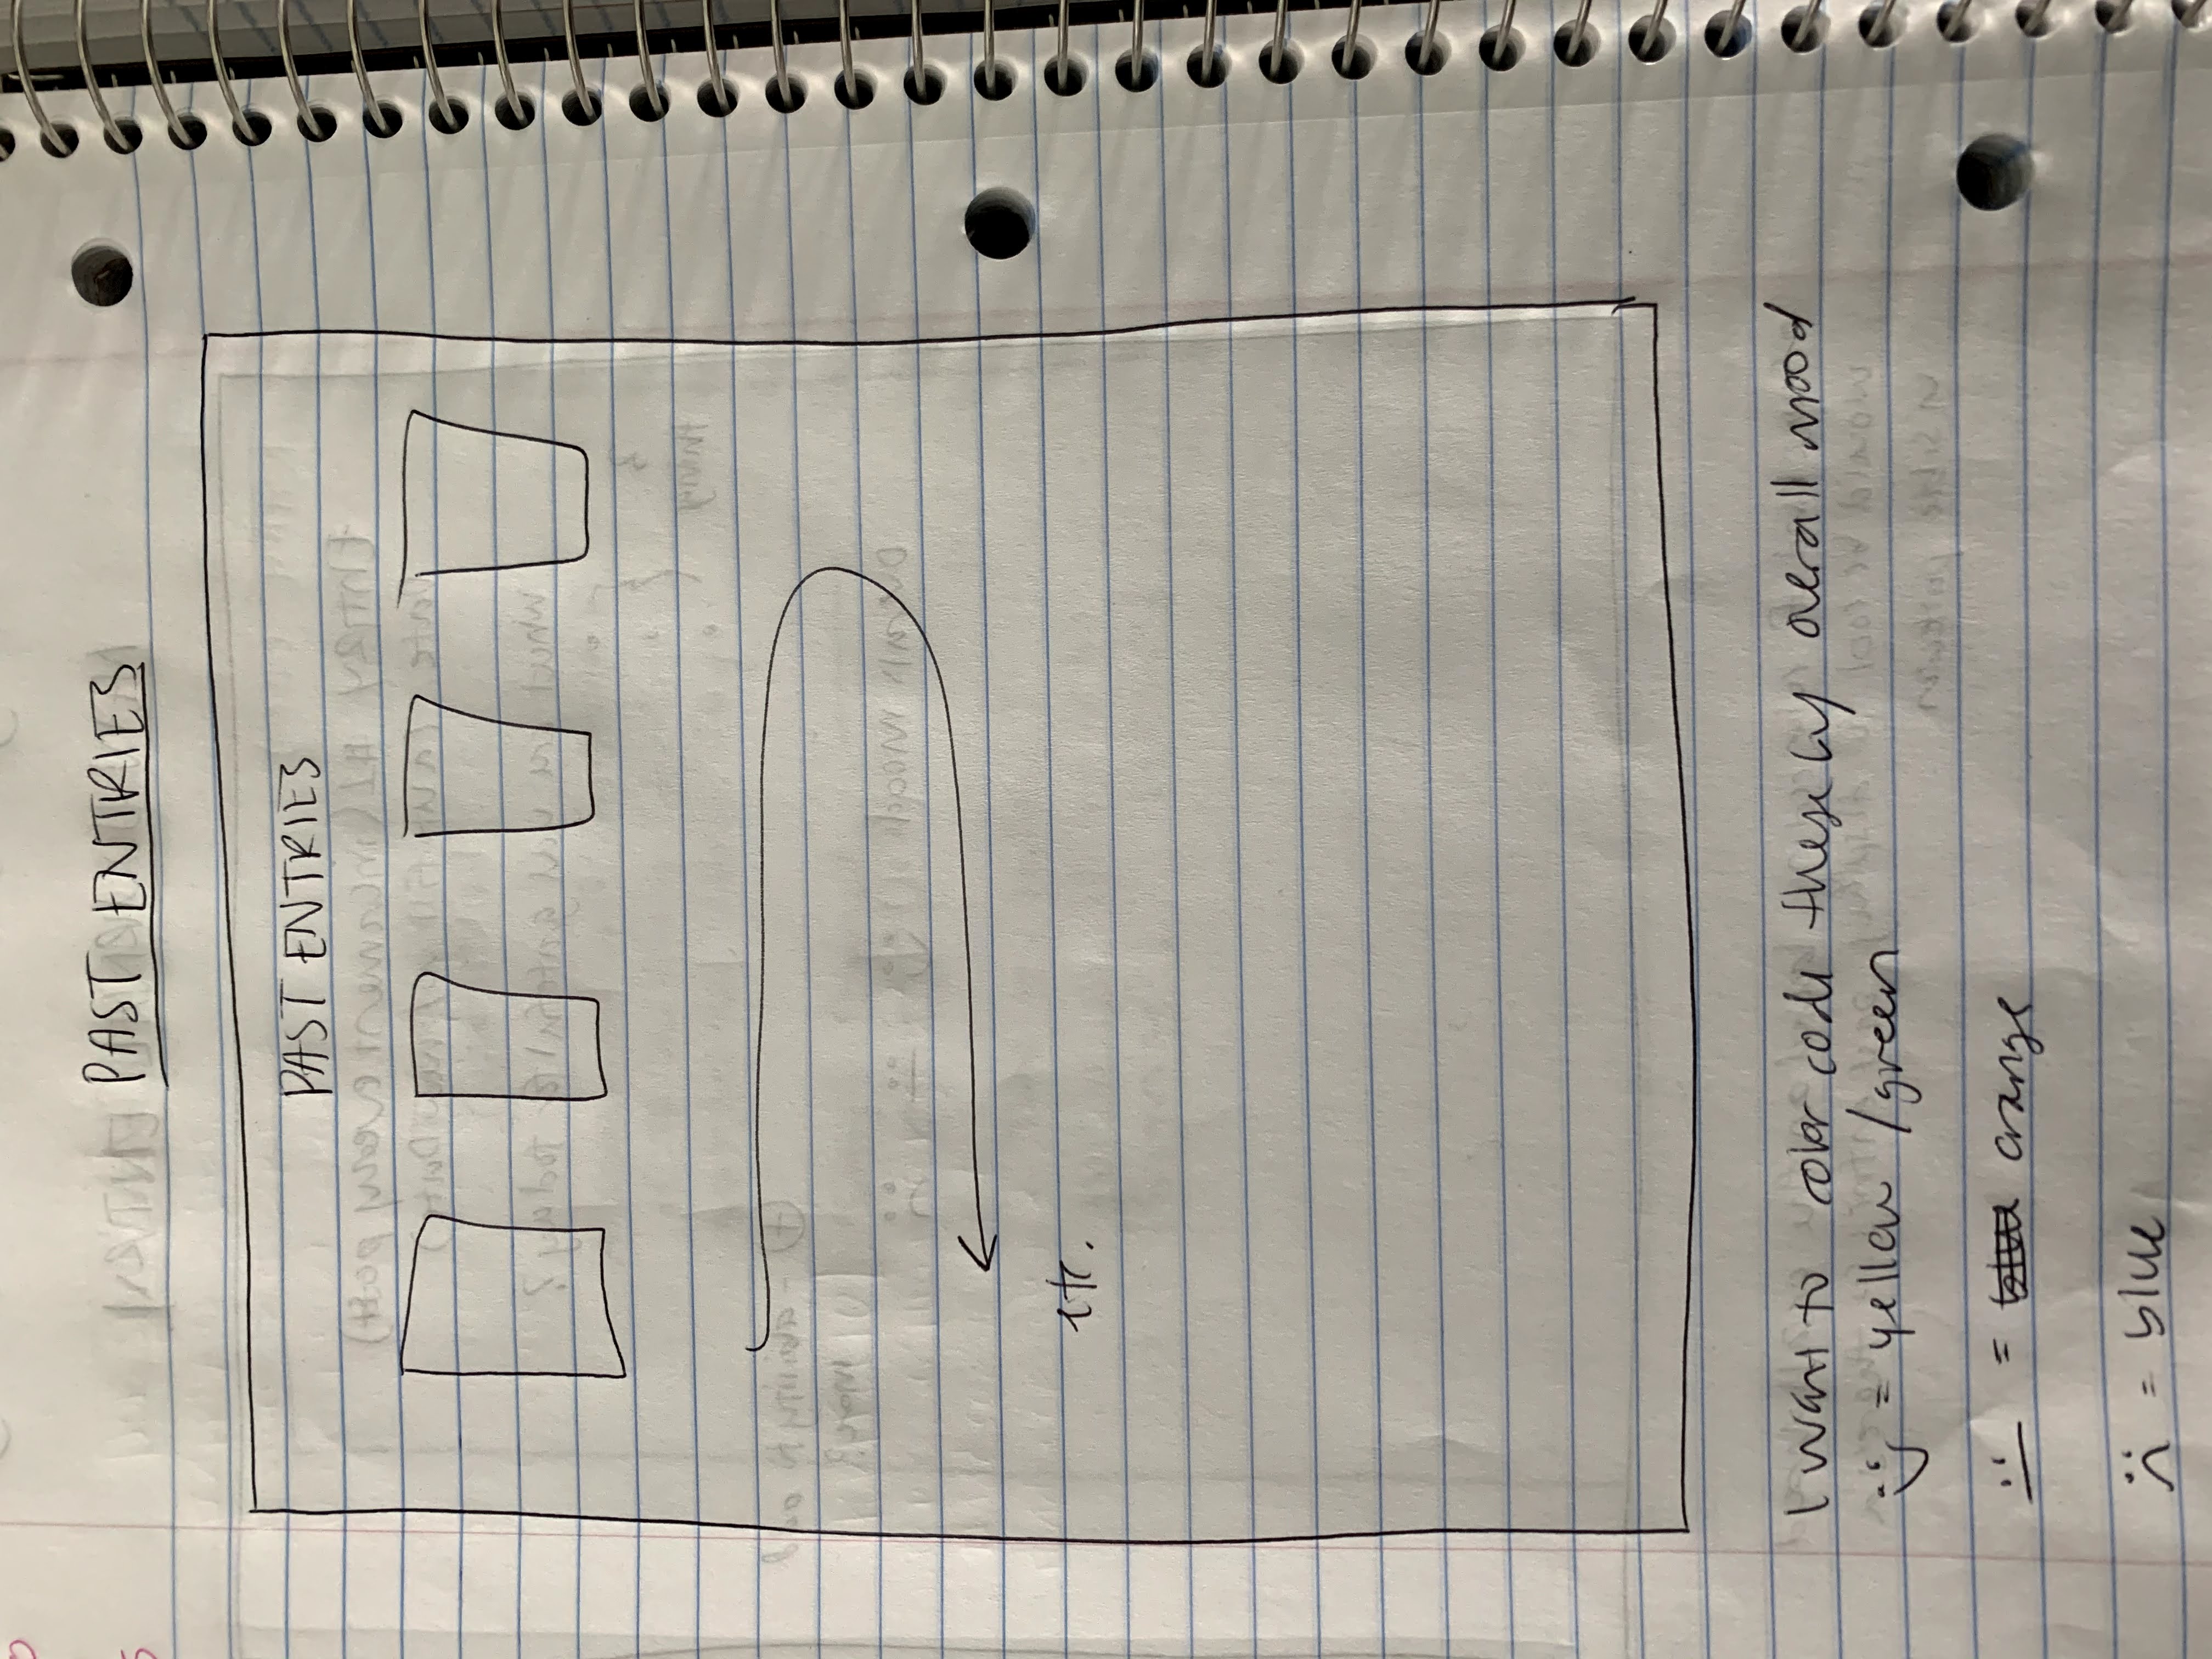 PAST ENTRIES
PAST ENTRIES
etc.
I want to color code these by overall mood
= yellow / green
= blue orange
= blue